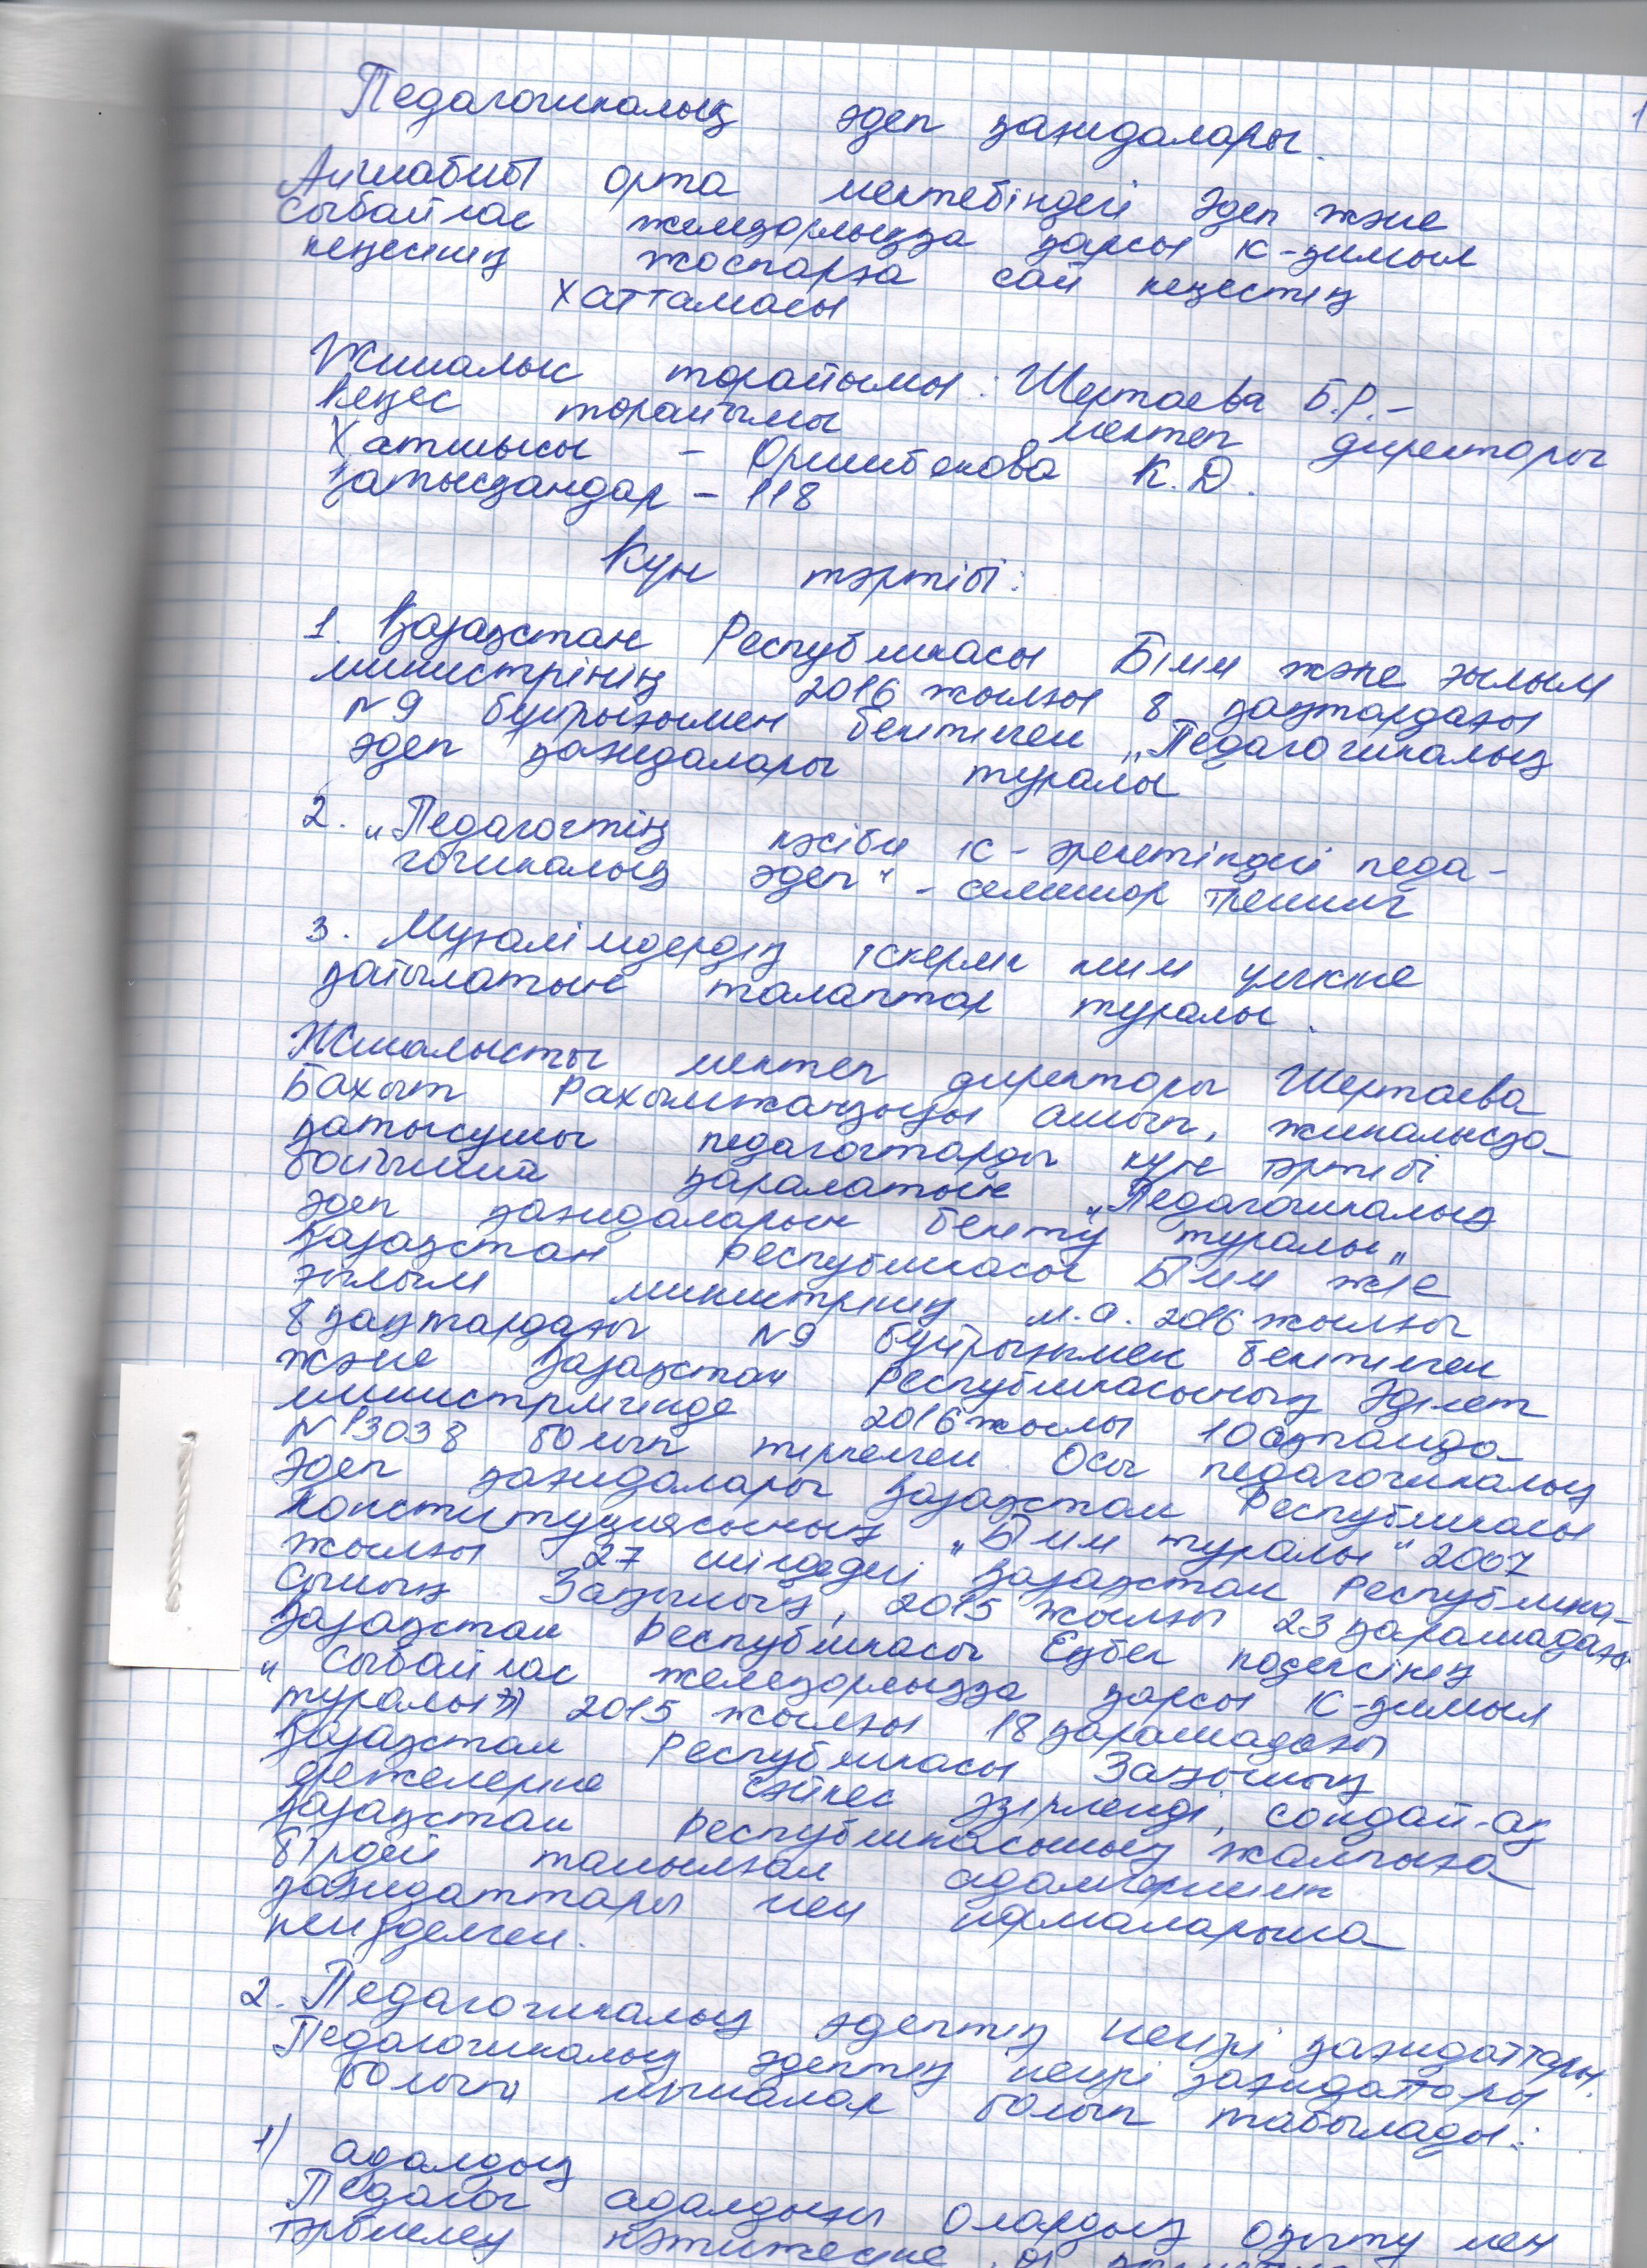 1
Педагогикалық әдеп қағидалары.
Айшабибі орта мектебіндегі Әдеп және
сыбайлас жемқорлыққа қарсы іс-қимыл
кеңесінің жоспарға сай кеңестің
хаттамасы
Жиналыс төрайымы: Шертаева Б.Р.-
Кеңес төрайымы мектеп директоры
Хатшысы - Орынбекова К.Д.
Қатысқандар - 118
Күн тәртібі:
1. Қазақстан Республикасы Білім және ғылым
министрінің 2016 жылғы 8 қаңтардағы
№9 бұйрығымен бекітілген „Педагогикалық
әдеп қағидалары туралы
2. „Педагогтің кәсіби іс-әрекетіндегі педа-
гогикалық әдеп“ - семинар тренинг
3. Мұғалімдердің іскерлік киім үлгісіне
қойылатын талаптар туралы.
Жиналысты мектеп директоры Шертаева
Бахыт Рахымжанқызы ашып, жиналысқа
қатысушы педагогтарды күн тәртібі
бойынша қаралатын „Педагогикалық
әдеп қағидаларын бекіту туралы„
Қазақстан Республикасы Білім және
ғылым министрінің м.а. 2016 жылғы
8 қаңтардағы №9 бұйрығымен бекітілген
және Қазақстан Республикасының Әділет
министрлігінде 2016 жылы 10 ақпанда
№13038 болып тіркелген. Осы педагогикалық
Әдеп қағидалары Қазақстан Республикасы
Конституциясының „Білім туралы“ 2007
жылғы 27 шілдедегі Қазақстан Республика-
сының Заңының, 2015 жылғы 23 қарашадағы
Қазақстан Республикасы Еңбек кодексінің
„Сыбайлас жемқорлыққа қарсы іс-қимыл
туралы» 2015 жылғы 18 қарашадағы
Қазақстан Республикасы Заңының
ережелеріне сәйкес әзірленді, сондай-ақ
Қазақстан Республикасының жалпыға
бірдей танылған адамгершілік
қағидаттары мен нормаларына
негізделген.
2. Педагогикалық әдептің негізгі қағидаттары.
Педагогикалық әдептің негізгі қағидаттары
болып мыналар болып табылады:
1) адалдық
Педагог адалдығы олардың оқыту мен
тәрбиелеу нәтижесіне